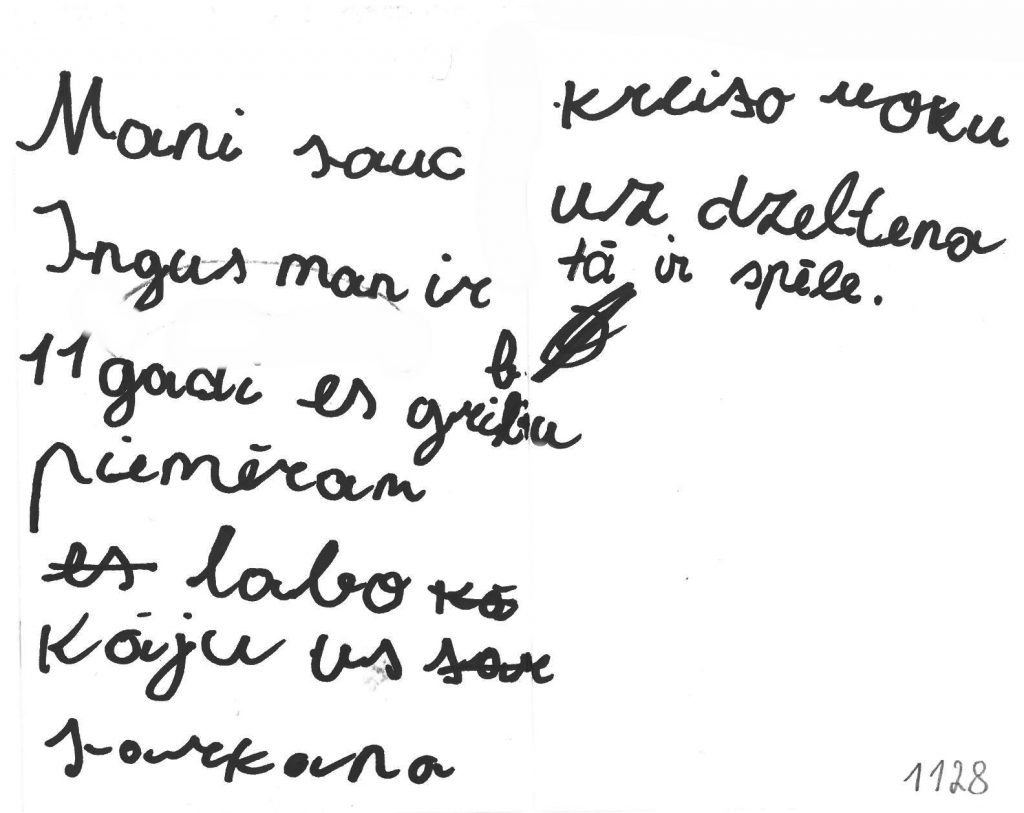 Mani sauc
Ingus man ir
11 gadi es gribu
piemēram
es labo kā
kāju us sar
sarkana
kreiso roku
uz dzeltena
tā ir spēle.
1128